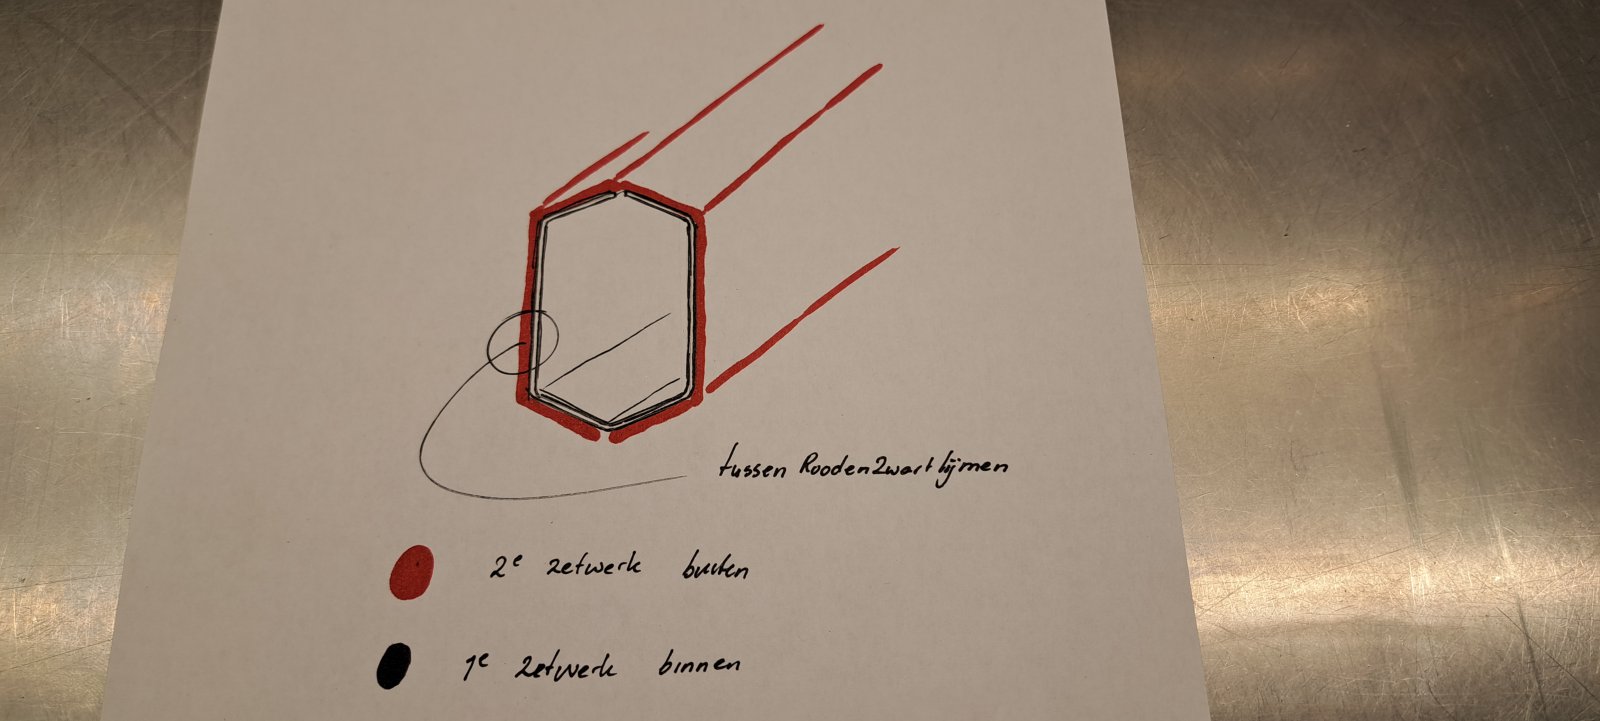 tussen Rood en Zwart lijmen
2e zetwerk buiten
1e zetwerk binnen